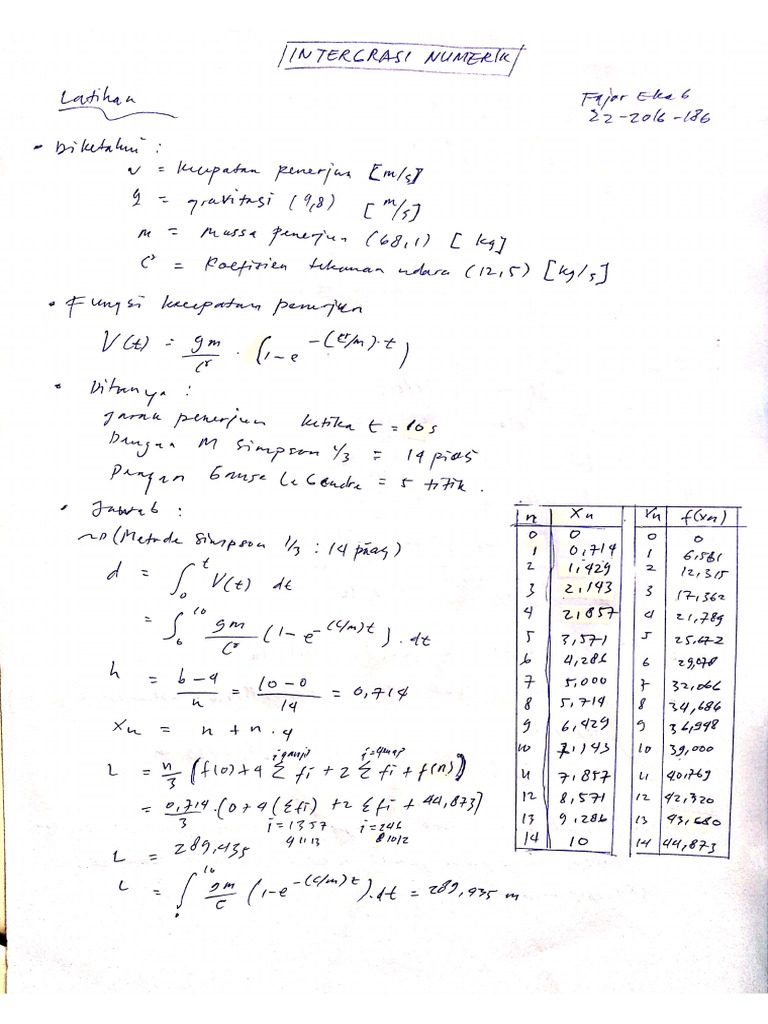 INTERGRASI NUMERIK
Latihan
Fajar Eka G
22-2016-186
• Diketahui :
v = kecepatan penerjun [m/s]
g = gravitasi (9,8) [m/s]
m = massa penerjun (68,1) [kg]
c = Koefisien tekanan udara (12,5) [kg/s]
• Fungsi kecepatan penerjun
V(t) = gm/c . (1-e^-(c/m).t)
• Ditanya :
Jarak penerjun ketika t = 10s
Dengan M Simpson 1/3 = 14 pias
Dengan Gauss Legendre = 5 titik.
• Jawab :
(Metode Simpson 1/3 : 14 pias)
d = ∫₀^t V(t) dt
= ∫₀^10 gm/c (1-e^-(c/m)t).dt
h = b-a/n = 10-0/14 = 0,714
Xn = n + n . 4
i ganjil i=genap
L = h/3 (f(0)+4 Σfi + 2 Σfi + f(n))
= 0,714/3 . (0+4(Σfi) + 2 Σfi + 44,873)
i=1357 i=246
91113 81012
L = 289,435
L = ∫₀^10 gm/c (1-e^-(c/m)t).dt = 289,435 m
n Xn Xn f(xn)
0 0 0 0
1 0,714 1 6,561
2 1,429 2 12,315
3 2,143 3 17,362
4 2,857 4 21,789
5 3,571 5 25,672
6 4,286 6 29,078
7 5,000 7 32,066
8 5,714 8 34,686
9 6,429 9 36,998
10 7,143 10 39,000
11 7,857 11 40,769
12 8,571 12 42,320
13 9,286 13 43,680
14 10 14 44,873